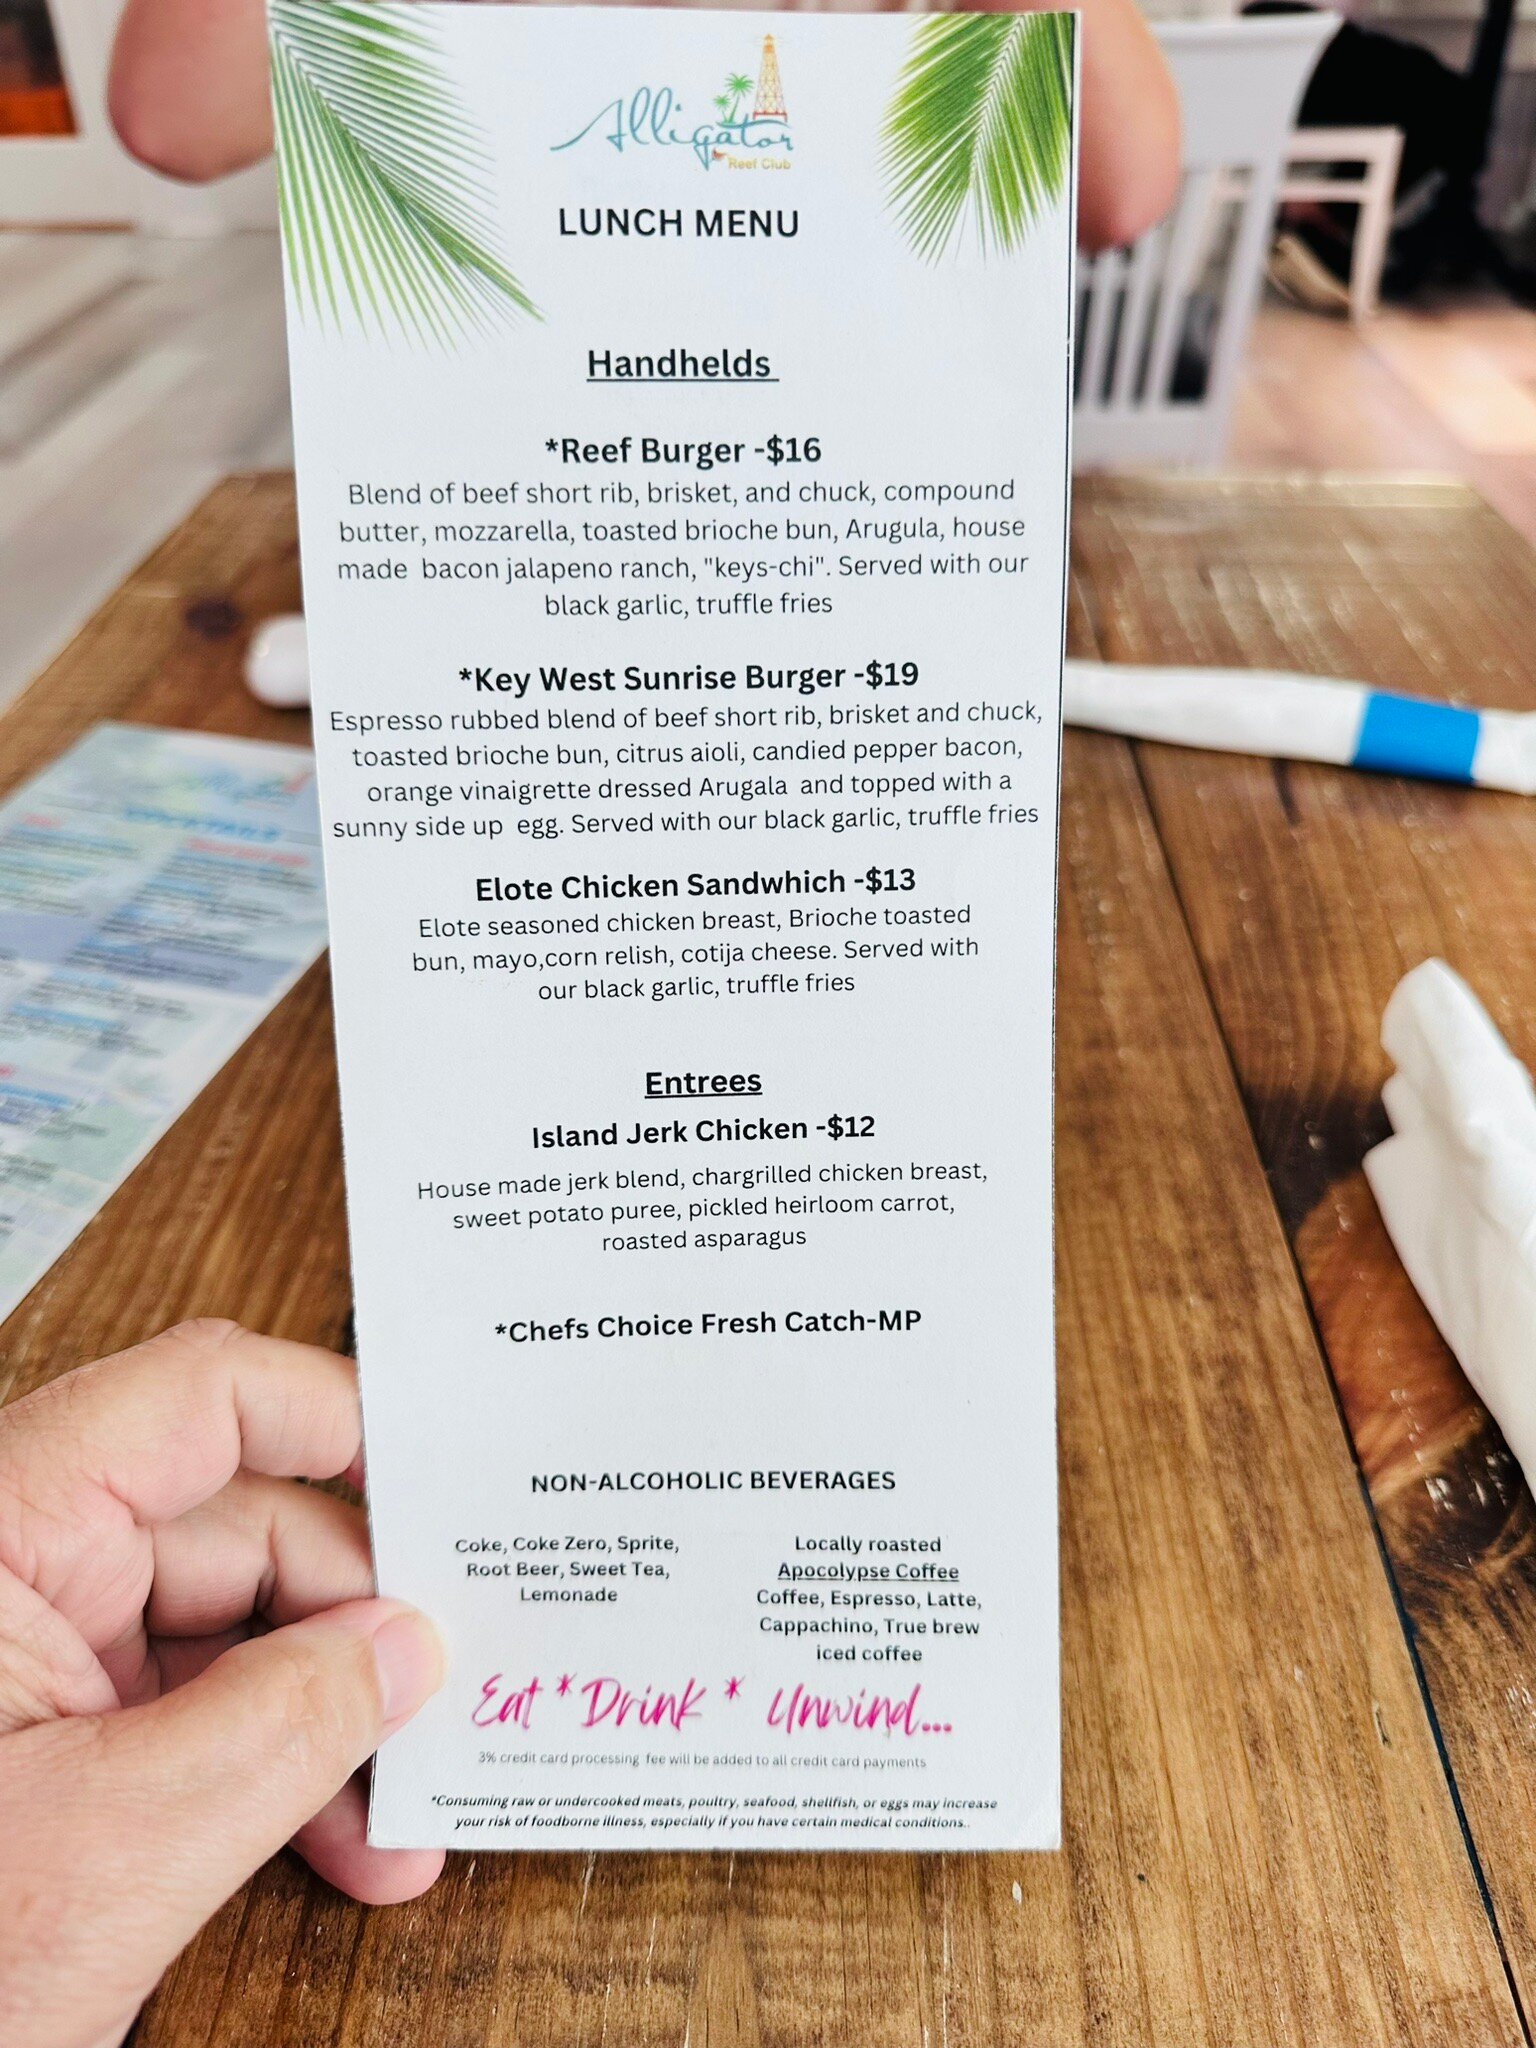 Alligator
Reef Club
LUNCH MENU
Handhelds
*Reef Burger -$16
Blend of beef short rib, brisket, and chuck, compound
butter, mozzarella, toasted brioche bun, Arugula, house
made bacon jalapeno ranch, "keys-chi". Served with our
black garlic, truffle fries
*Key West Sunrise Burger -$19
Espresso rubbed blend of beef short rib, brisket and chuck,
toasted brioche bun, citrus aioli, candied pepper bacon,
orange vinaigrette dressed Arugala and topped with a
sunny side up egg. Served with our black garlic, truffle fries
Elote Chicken Sandwhich -$13
Elote seasoned chicken breast, Brioche toasted
bun, mayo,corn relish, cotija cheese. Served with
our black garlic, truffle fries
Entrees
Island Jerk Chicken -$12
House made jerk blend, chargrilled chicken breast,
sweet potato puree, pickled heirloom carrot,
roasted asparagus
*Chefs Choice Fresh Catch-MP
NON-ALCOHOLIC BEVERAGES
Coke, Coke Zero, Sprite,
Root Beer, Sweet Tea,
Lemonade
Locally roasted
Apocolypse Coffee
Coffee, Espresso, Latte,
Cappachino, True brew
iced coffee
Eat * Drink * Unwind...
3% credit card processing fee will be added to all credit card payments
*Consuming raw or undercooked meats, poultry, seafood, shellfish, or eggs may increase
your risk of foodborne illness, especially if you have certain medical conditions..